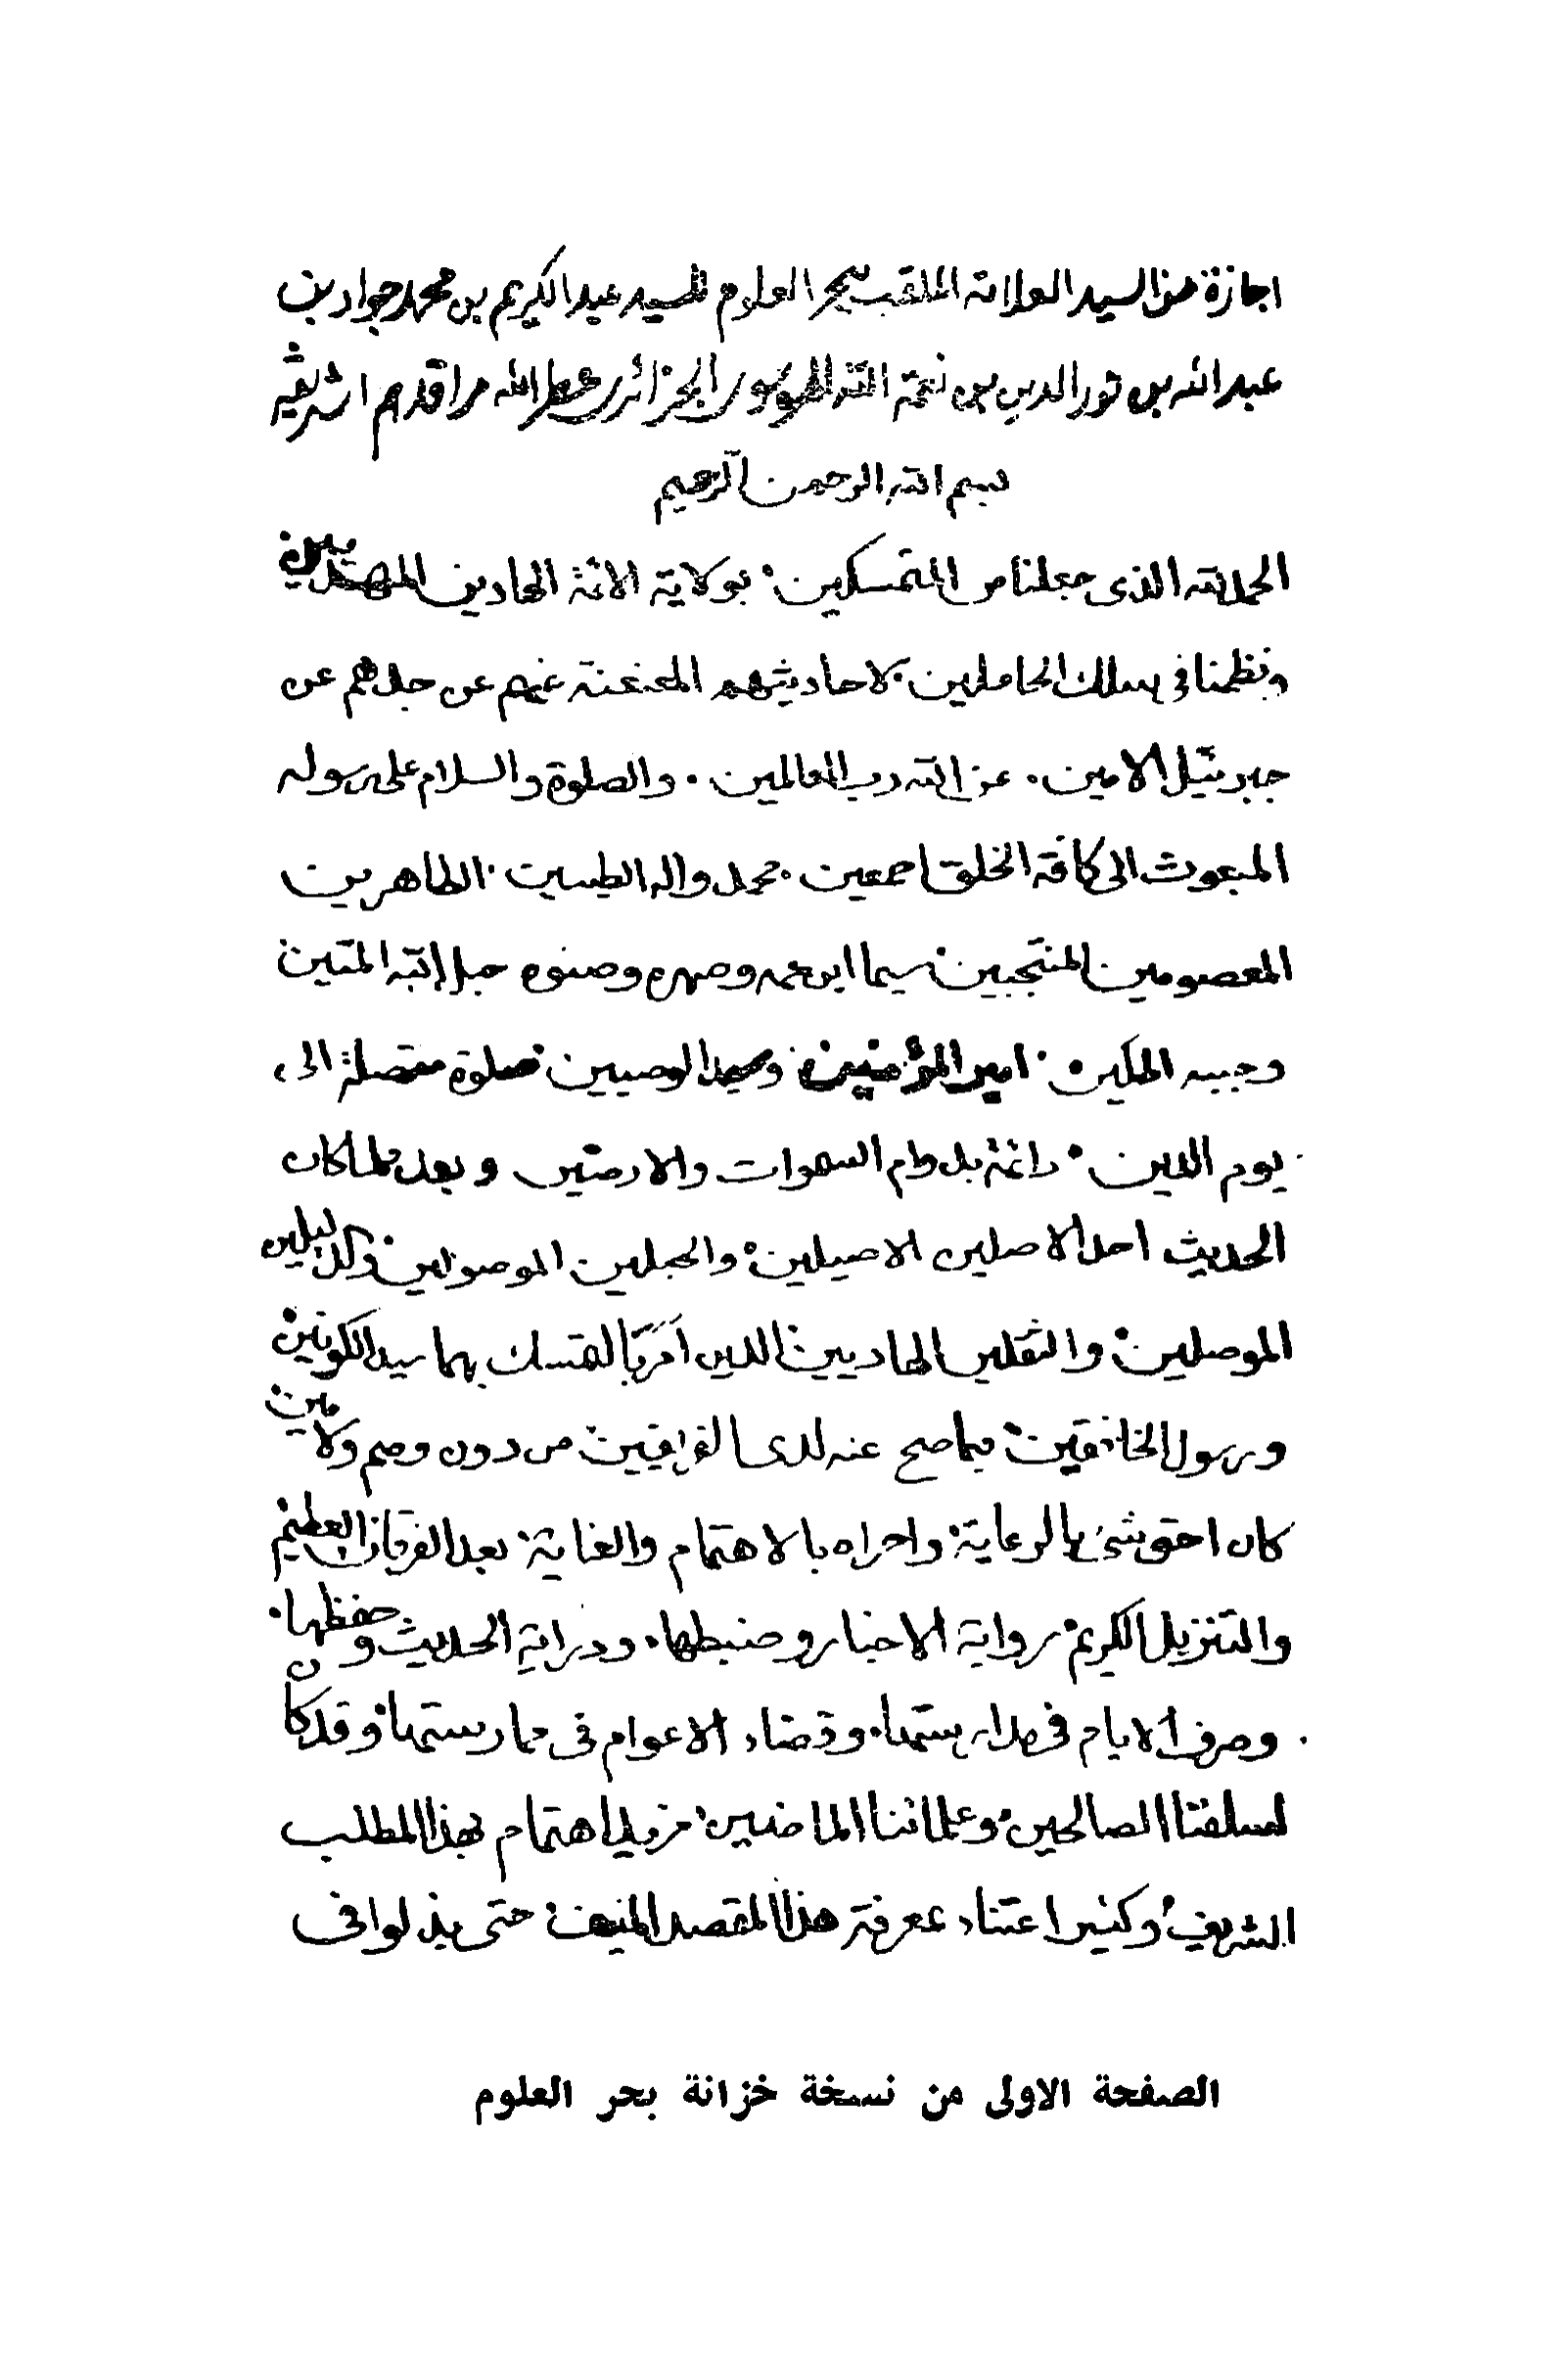 اجازة من السيد العلامة الملقب ببحر العلوم للسيد عبد الكريم بن محمد جواد بن
عبد الله بن نور الدين بن نعمة الله الموسوى الجزائرى عطر الله مراقدهم الشريفة
بسم الله الرحمن الرحيم
الحمد لله الذى جعلنا من المتمسكين بولاية الائمة الهادين المهتدين
ونظمنا فى سلك الحاملين لاحاديثهم المعنعنة عنهم عن جدهم عن
جبرئيل الامين . عن الله رب العالمين . والصلوة والسلام على رسوله
المبعوث الى كافة الخلق اجمعين . محمد واله الطيبين الطاهرين
المعصومين المنتجبين سيما ابن عمه وصهره وصنوه حبل الله المتين
وحبيبه المكين امير المؤمنين وسيد الوصيين صلوة متصلة الى
يوم الدين دائمة بدوام السموات والارضين وبعد فلما كان
الحديث احد الاصلين الاصيلين والحبلين الموصولين والدليلين
الموصلين والثقلين الهاديين الذين اَمَرَنا بالتمسك بهما سيد الكونين
ورسول الخافقين فيما صح عنه لدى الفريقين من دون وصم ولا مين
كان احق شئ بالرعاية واحراه بالاهتمام والعناية بعد الفرقان العظيم
والتنزيل الكريم رواية الاخبار وضبطها . ودراية الحديث وحفظها .
وصرف الايام فى مدارستها . وقضاء الاعوام فى ممارستها وقد كان
لسلفنا الصالحين وعلمائنا الماضين مزيد اهتمام بهذا المطلب
الشريف وكثير اعتناء بمعرفة هذا المقصد المنيف حتى بذلوا فى
الصفحة الاولى من نسخة خزانة بحر العلوم